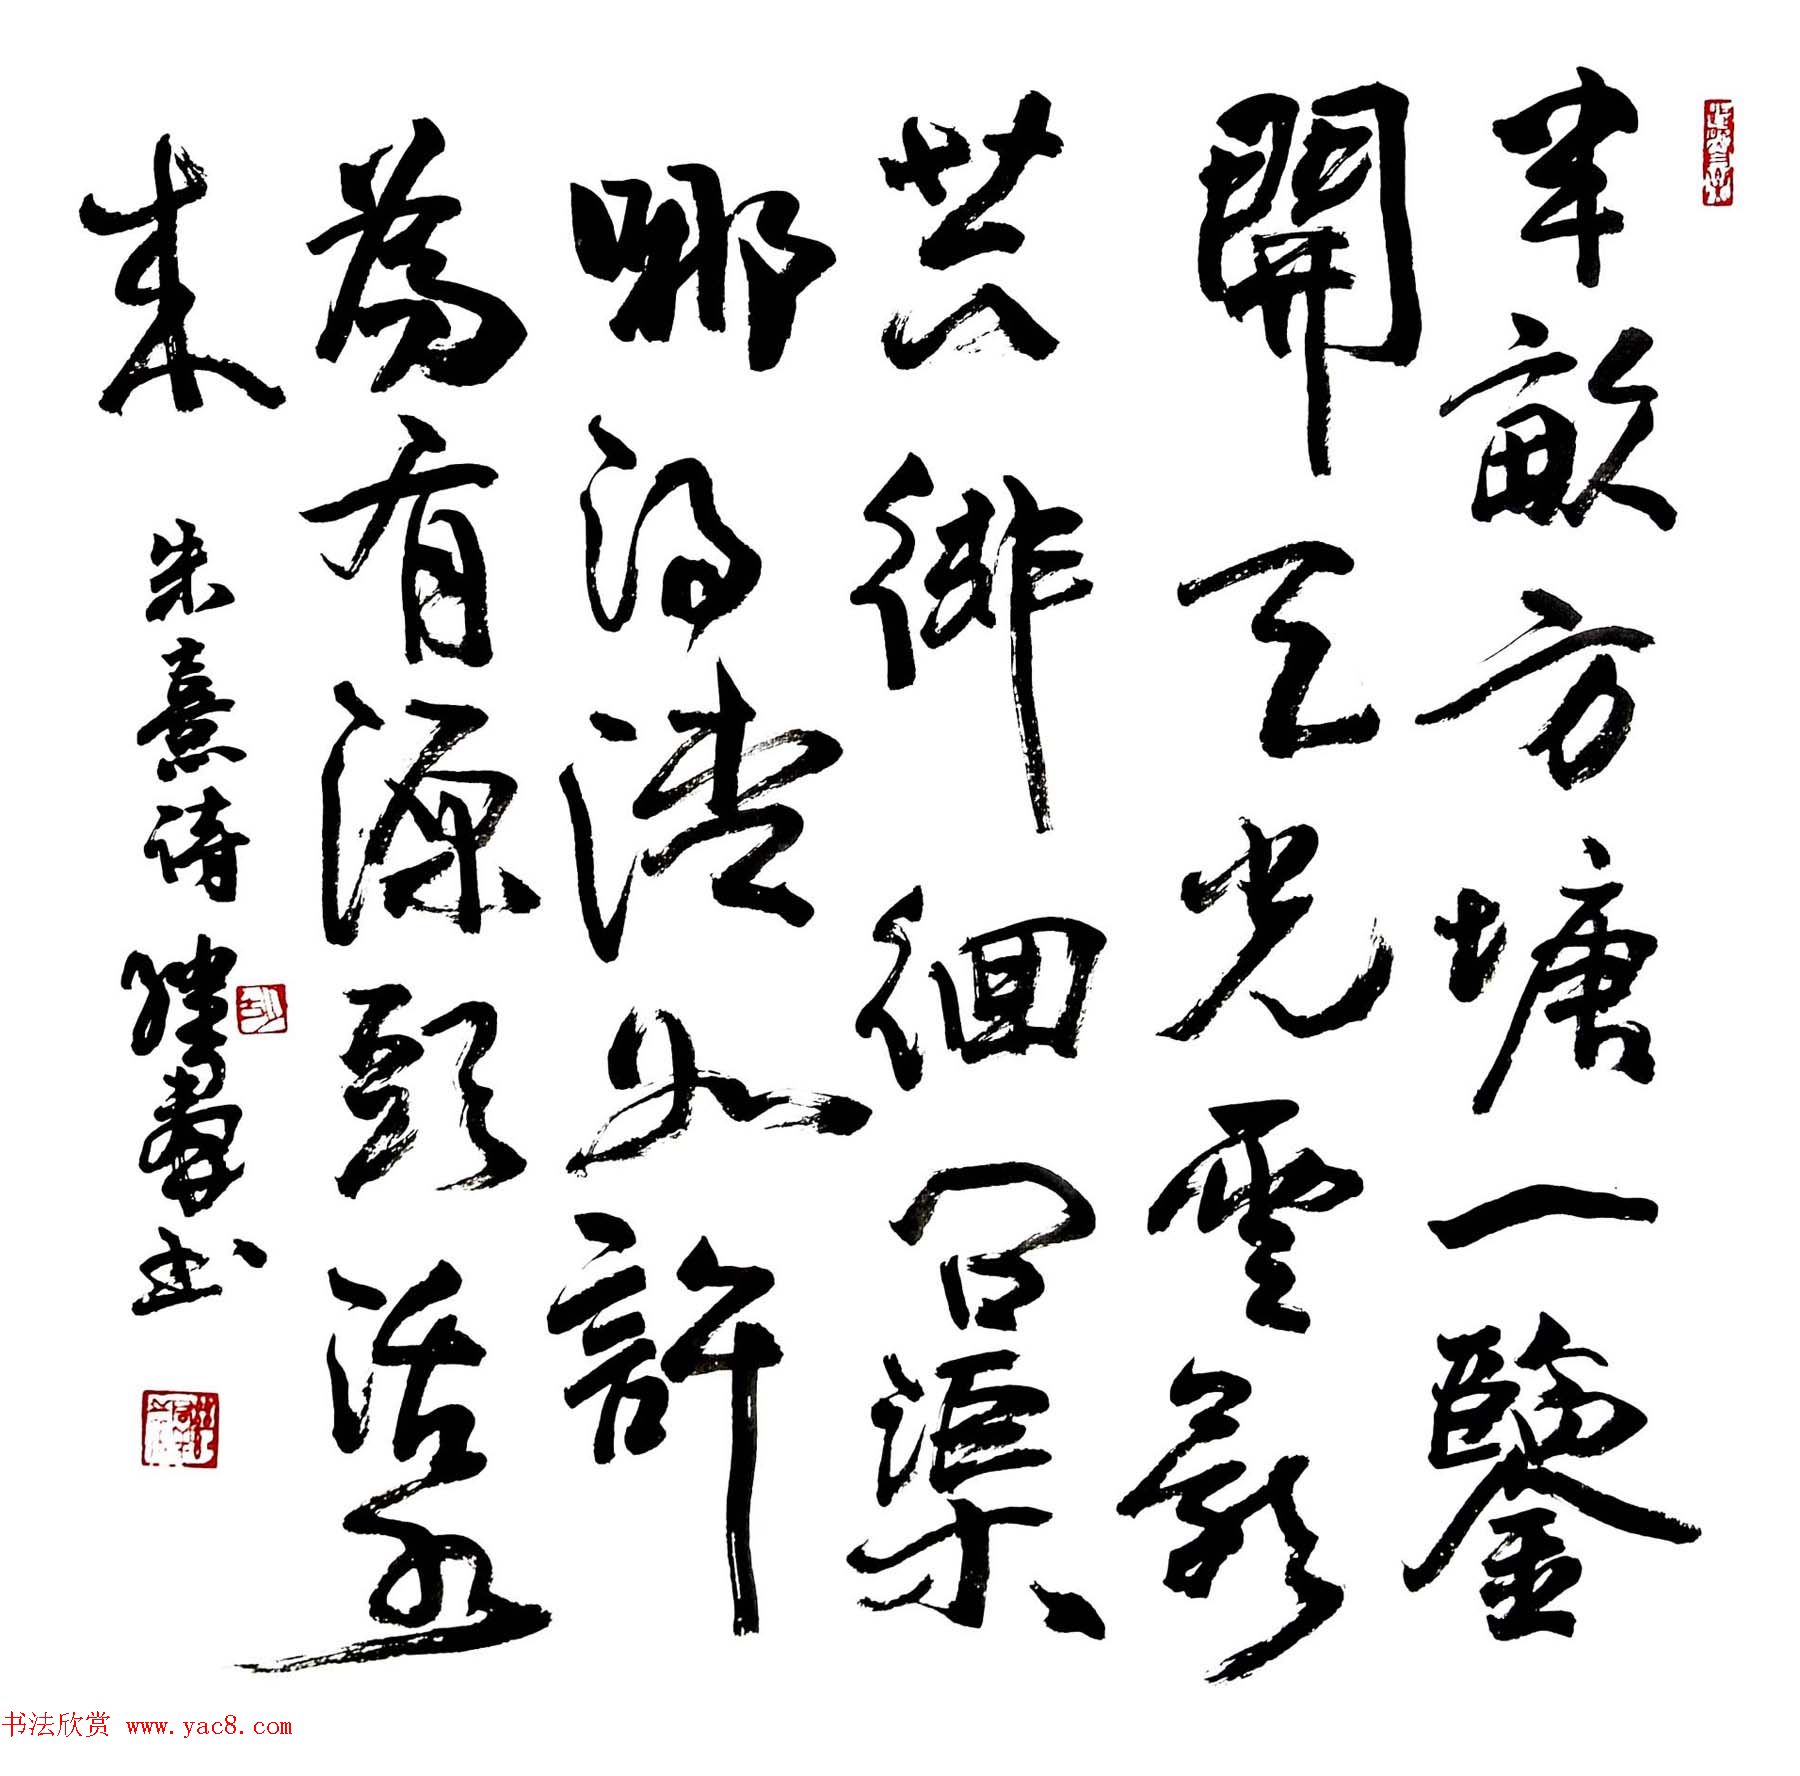 半畝方塘一鑒
開天光雲影
共徘徊問渠
哪得清如許
為有源頭活水
來
朱熹诗 书
书法欣赏 www.yac8.com